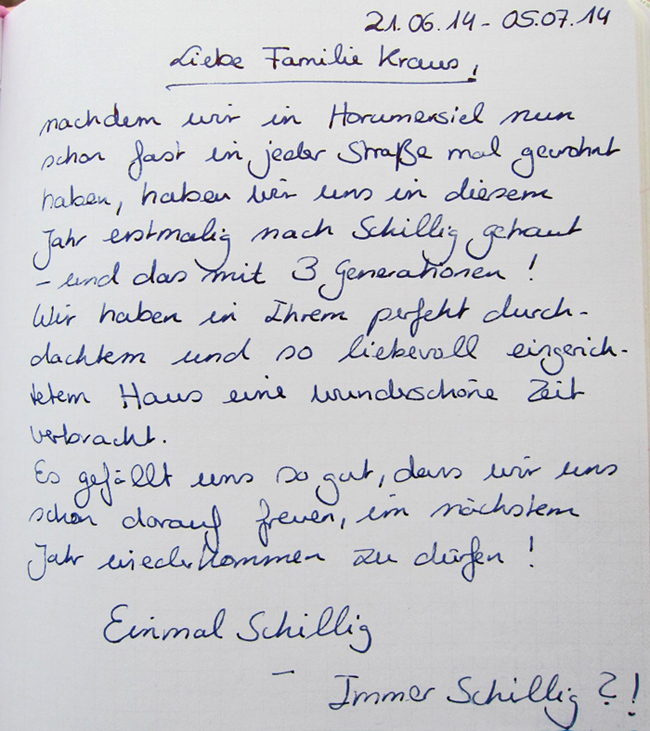 21.06.14 - 05.07.14
Liebe Familie Kraus!
nachdem wir in Horumersiel nun
schon fast in jeder Straße mal gewohnt
haben, haben wir uns in diesem
Jahr erstmalig nach Schillig getraut
- und das mit 3 Generationen!
Wir haben in Ihrem perfekt durch-
dachtem und so liebevoll eingerich-
tetem Haus eine wunderschöne Zeit
verbracht.
Es gefällt uns so gut, dass wir uns
schon darauf freuen, im nächstem
Jahr wiederkommen zu dürfen!
Einmal Schillig
-
Immer Schillig?!